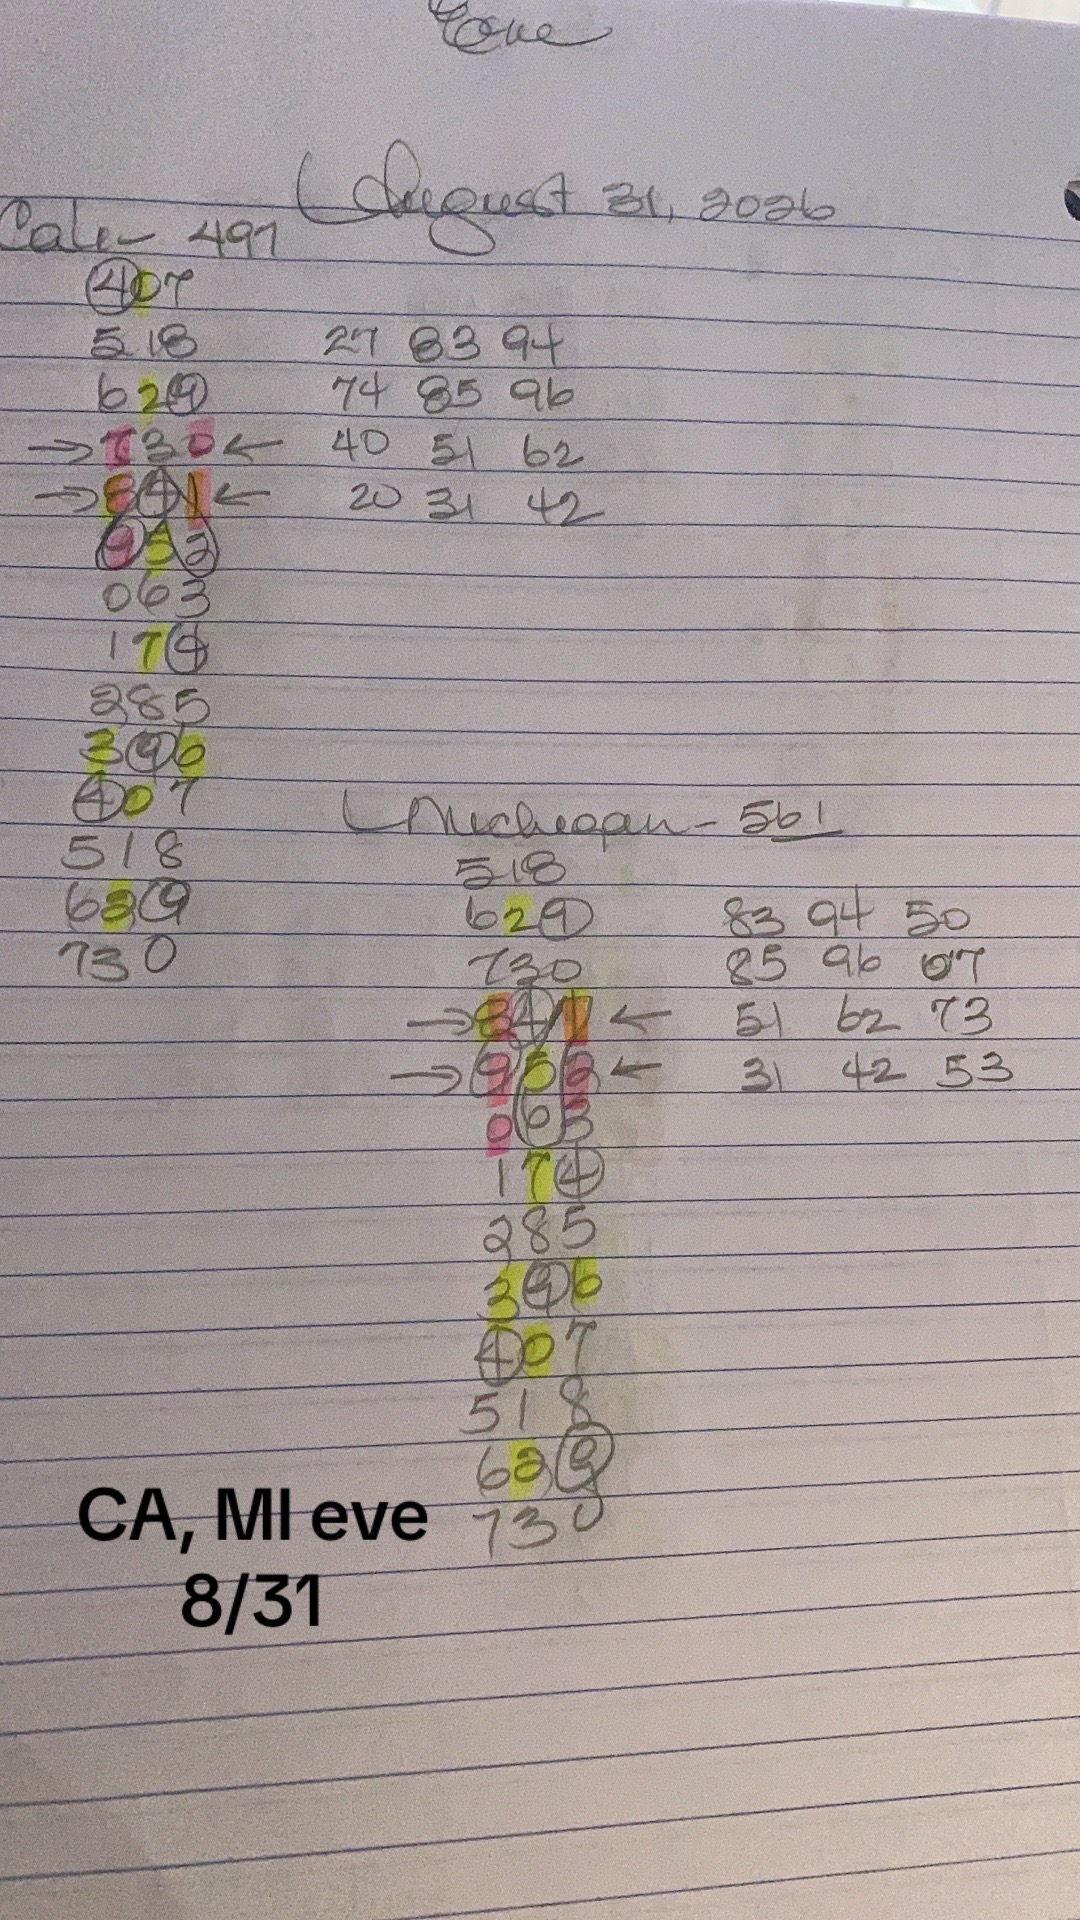 Eve
August 31, 2026
Cali- 497
407
518 27 83 94
629 74 85 96
→730← 40 51 62
→841← 20 31 42
952
063
174
285
396
407
518
629
730
Michegan- 561
518
629 83 94 50
730 85 96 07
→841← 51 62 73
→952← 31 42 53
063
174
285
396
407
518
629
730
CA, MI eve
8/31